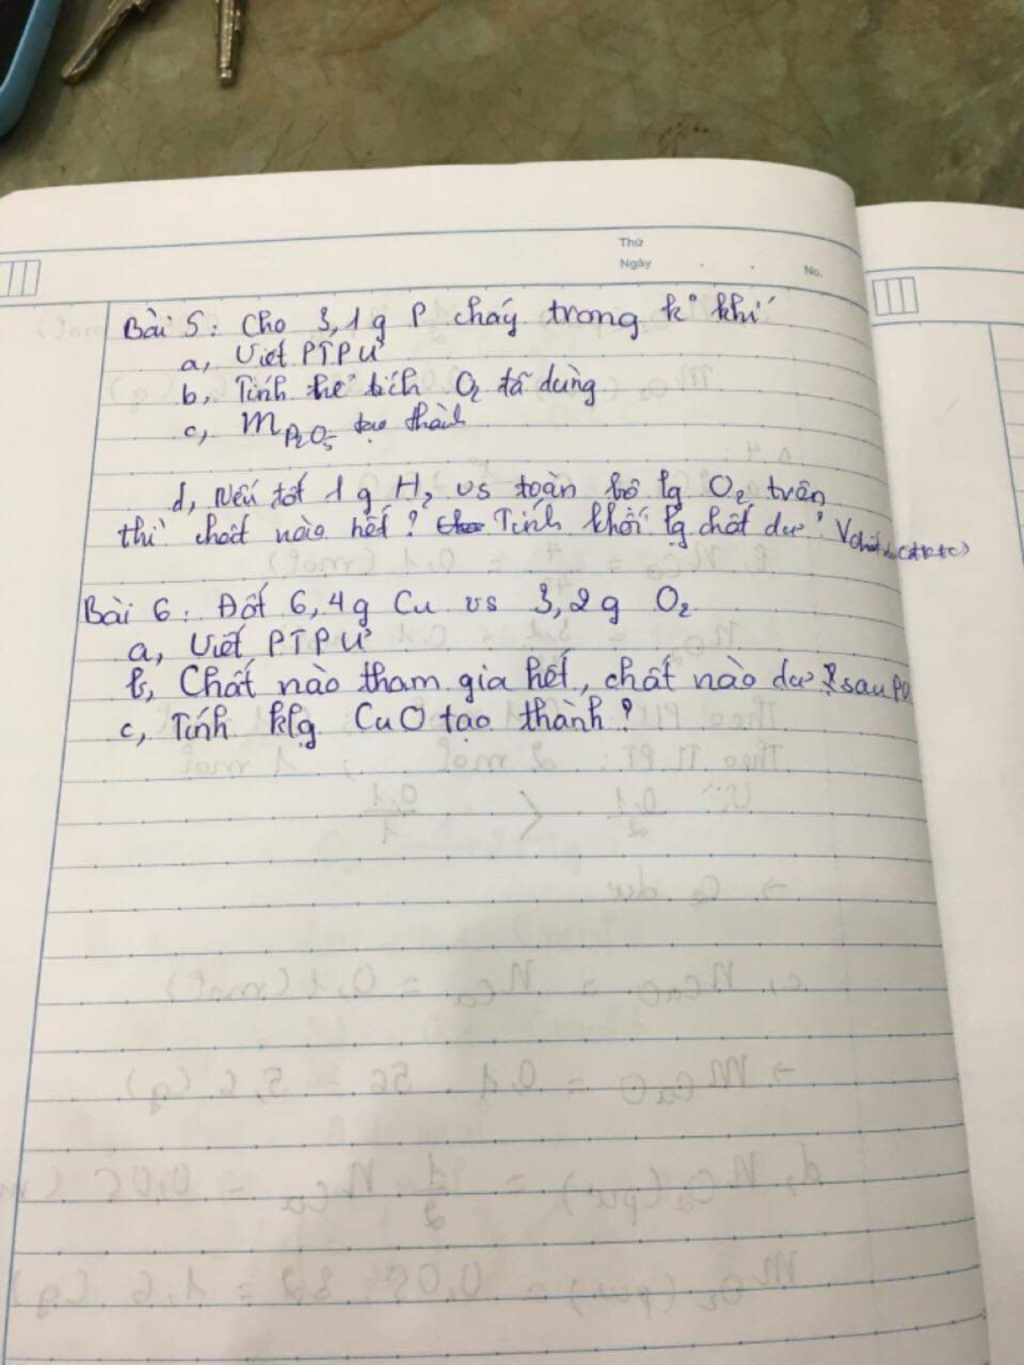 Thứ
Ngày . . No.
Bài 5: Cho 3,1g P cháy trong k° khí
a, Viết PTPƯ
b, Tính thể tích O₂ đã dùng
c, m P₂O₅ tạo thành
d, Nếu đốt 1g H₂ vs toàn bộ lg O₂ trên
thì chất nào hết? Tính khối lg chất dư? V chất dư (đktc)
Bài 6: Đốt 6,4g Cu vs 3,2g O₂
a, Viết PTPƯ
b, Chất nào tham gia hết, chất nào dư? sau PƯ
c, Tính klg CuO tạo thành?